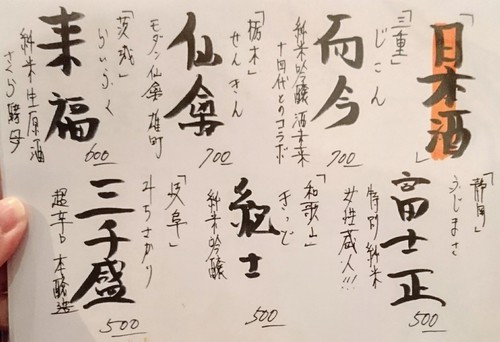 「日本酒」
「三重」
じこん
而今
純米吟醸 酒未来
十四代とのコラボ
700
「栃木」
せんきん
仙禽
モダン仙禽 雄町
700
「茨城」
らいふく
来福
純米生原酒
さくら酵母
600
「静岡」
ふじまさ
富士正
特別純米
女性蔵人!!!
500
「和歌山」
きっど
紀土
純米吟醸
500
「岐阜」
みちさかり
三千盛
超辛口 本醸造
500